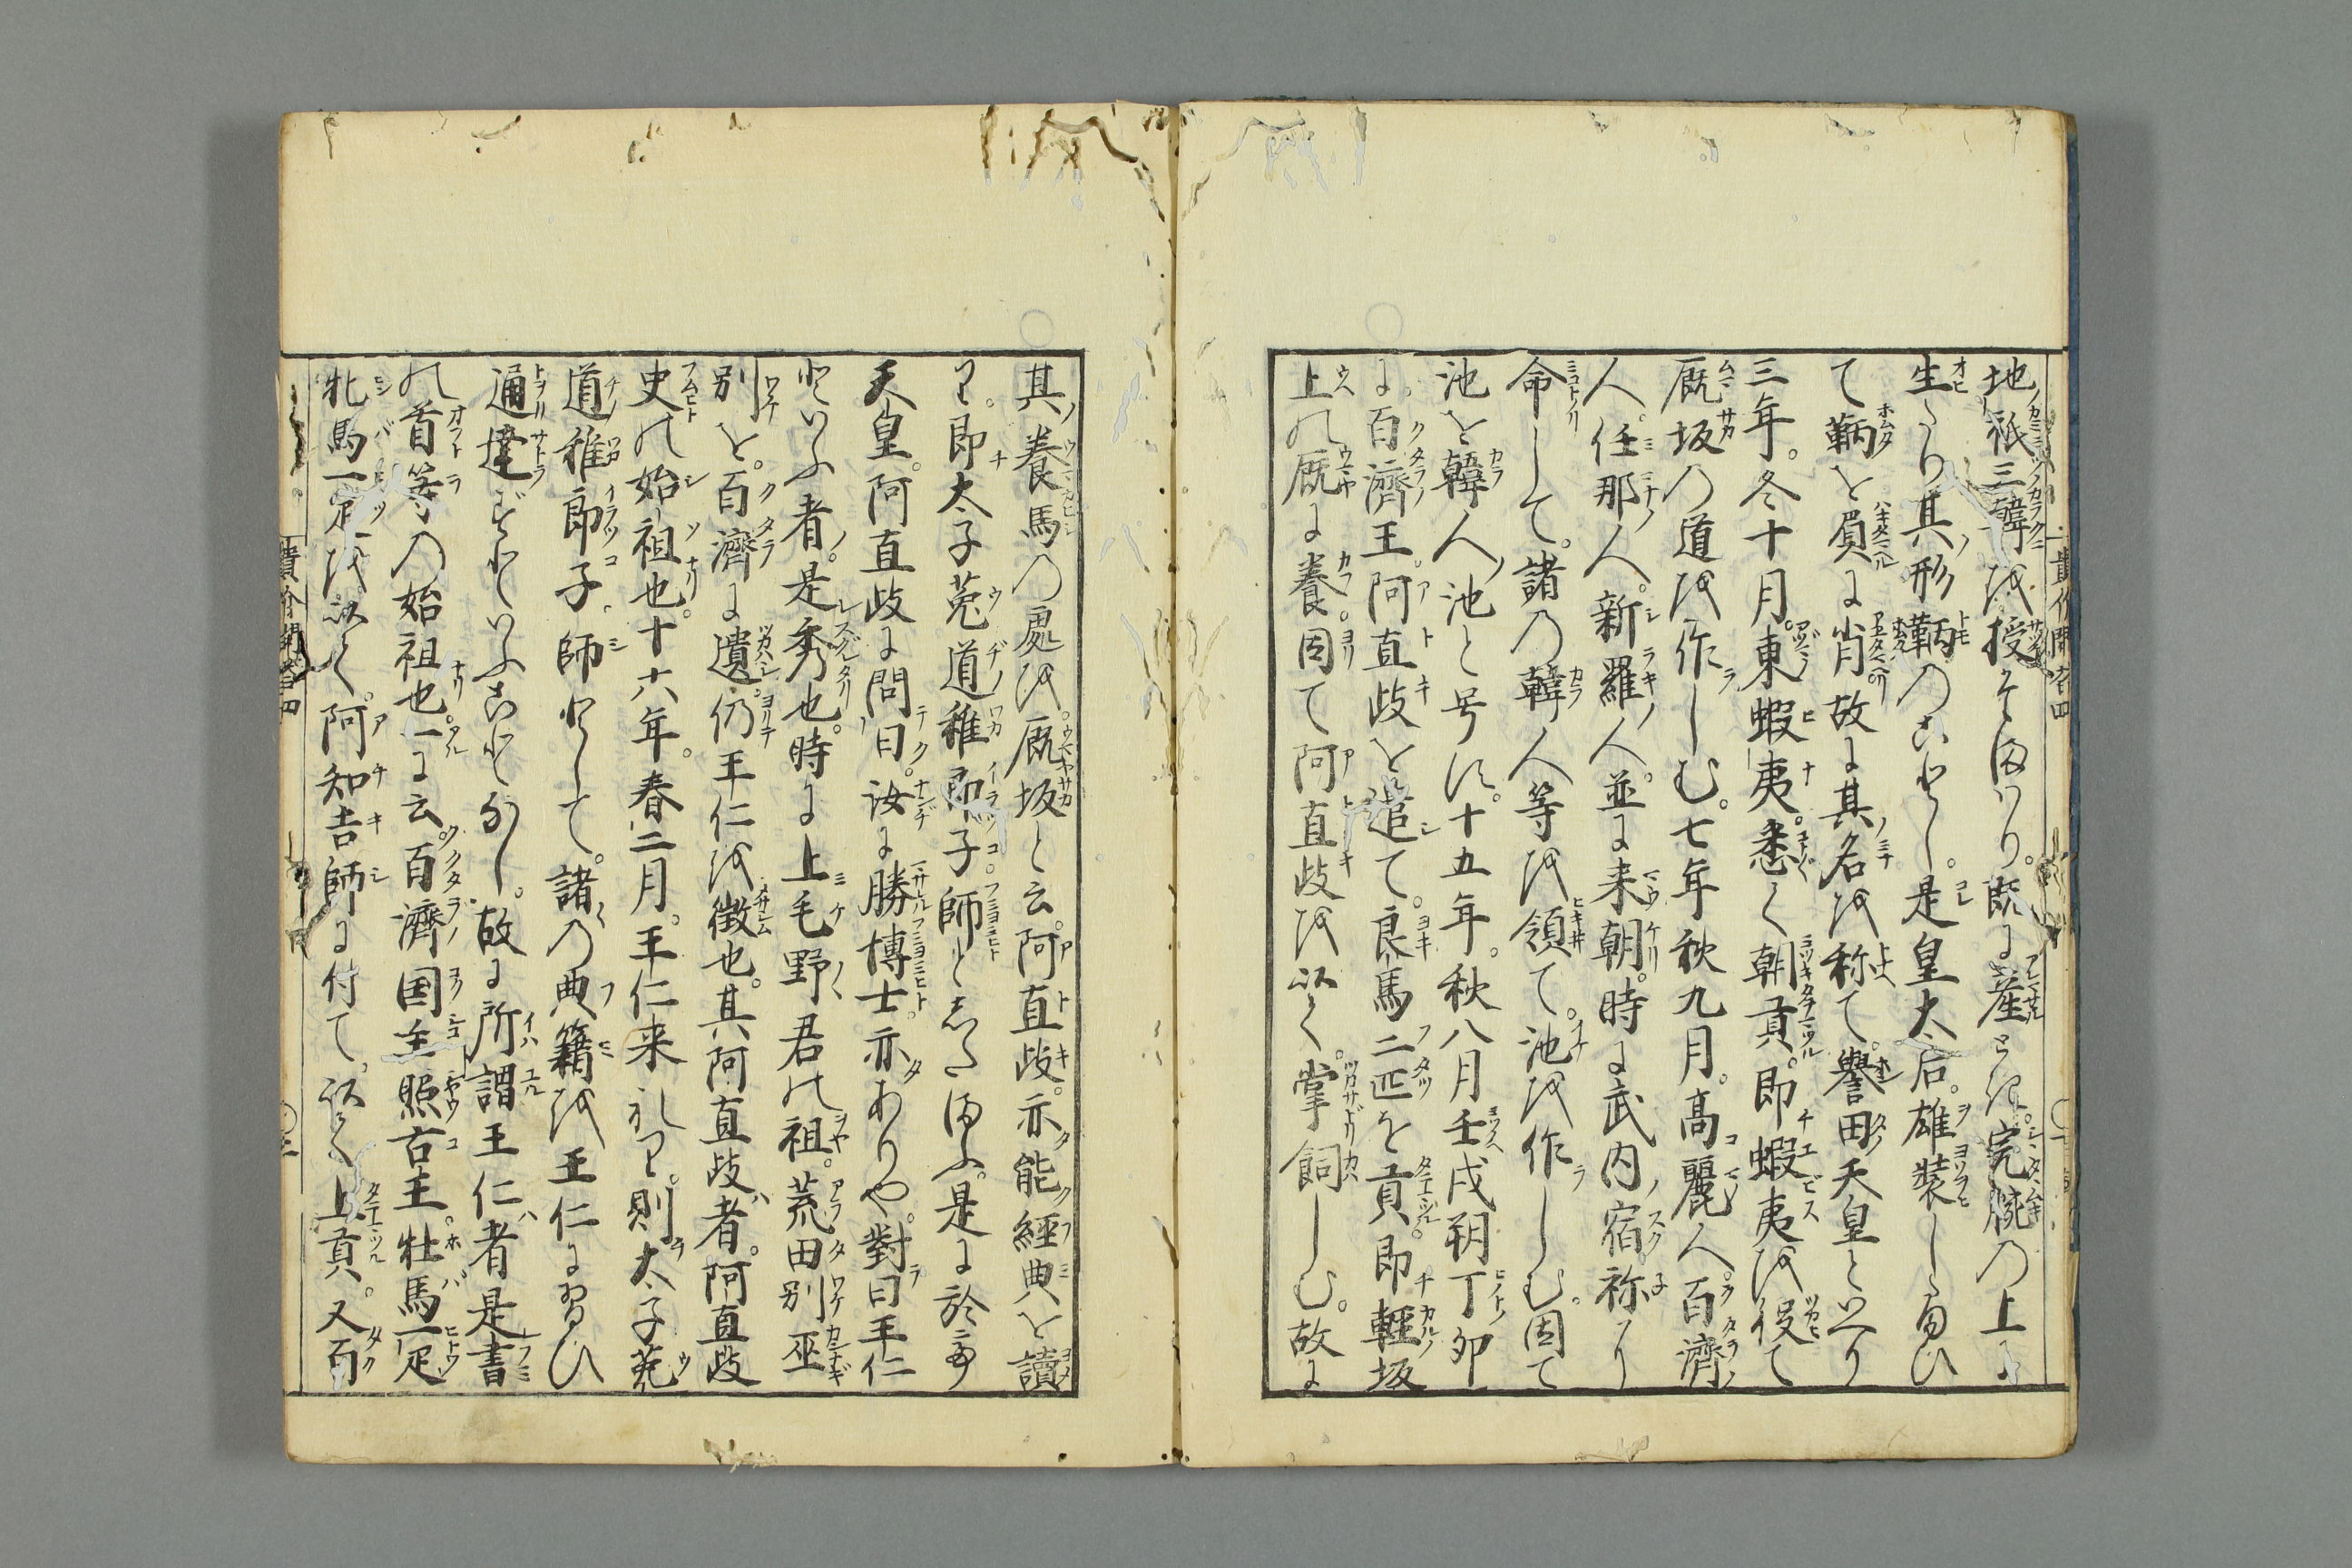 地祇三韓を授そまはり。既に産とき。完腕の上に
生たり其形鞆のことし。是皇太后。雄装したまひ
て鞆を負に肖故に其名を称て。譽田天皇と云り
三年。冬十月。東蝦夷。悉く朝貢。即蝦夷を役て
厩坂の道を作しむ。七年秋九月。高麗人。百濟
人。任那人。新羅人。並に来朝。時に武内宿祢に
命して。諸の韓人等を領て。池を作しむ。因て
池を韓人池と号く。十五年。秋八月壬戌朔丁卯
に。百濟王。阿直歧を遣して。良馬二匹を貢。即輕坂
上の厩に養。因て阿直歧を以く。掌飼しむ。故に
其養馬の處を。厩坂と云。阿直歧。亦能經典を讀
り。即太子菟道稚郎子。師としたまふ。是に於
天皇。阿直歧に問曰。汝に勝博士。亦ありや。對曰王仁
といふ者。是秀也。時に上毛野君の祖。荒田別巫
別を。百濟に遣。仍王仁を徴也。其阿直歧者。阿直歧
史の始祖也。十六年。春二月。王仁来れり。則太子菟
道稚郎子。師として。諸の典籍を王仁に習ひ
通達ずといふことなし。故に所謂王仁者是書
の首等の始祖也。一に云。百濟国主照古王。牡馬一疋
牝馬一疋を以く。阿知吉師に付て。以く上貢。又百